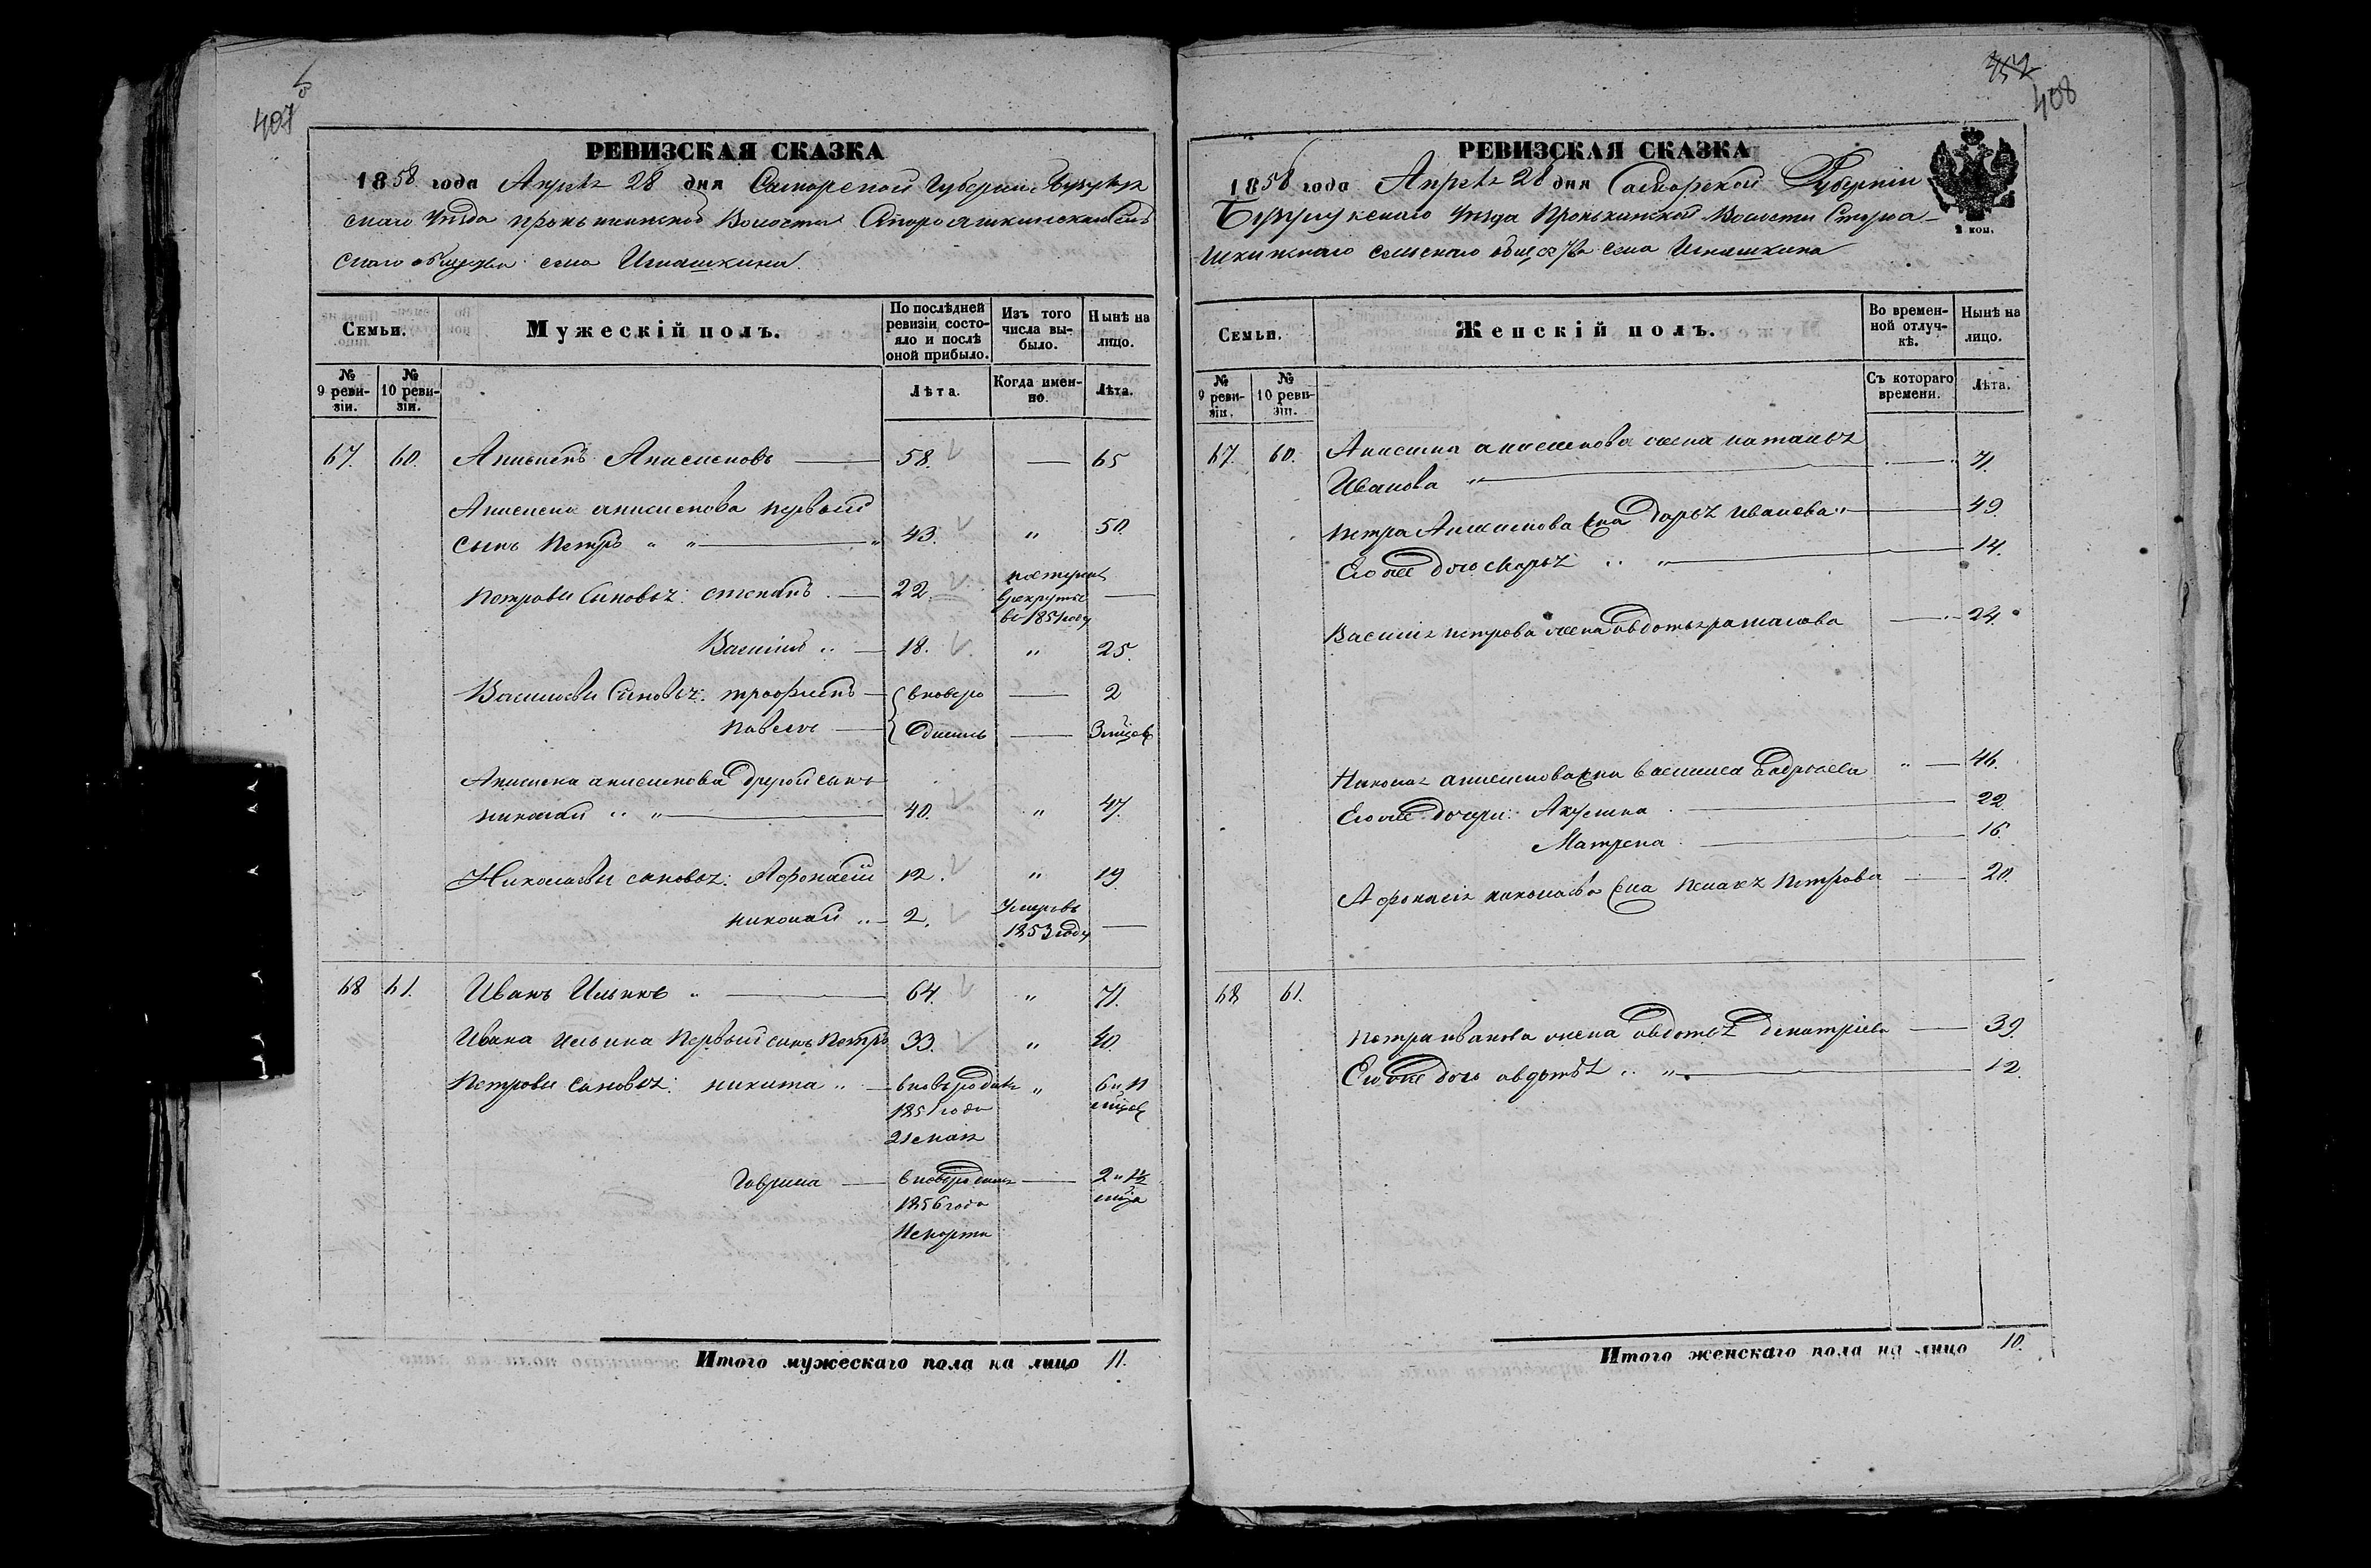 407 об
РЕВИЗСКАЯ СКАЗКА
1858 года Апреля 28 дня Самарской Губернии Бугурук
скаго уезда Пронькинской Волости Староашкинскаго сель
скаго общества села Игнашкина.
Семьи.
Мужескій полъ.
По послѣдней ревизіи состояло и послѣ оной прибыло.
Изъ того числа выбыло.
Нынѣ на лицо.
№ 9 ревизіи.
№ 10 ревизіи.
Лѣта.
Когда именно.
Лѣта.
67. 60. Анисимъ Анисимовъ 58. — 65
Анисима анисимова первый
сынъ Петръ " " 43. " 50.
Петровы сыновья: степанъ 22. поступилъ в рекруты в 1851 году —
Василий " 18. " 25.
Васильевы сыновья: трофимъ вновь ро — 2
павелъ дились — 3 мѣсяц
Анисима анисимова другой сынъ
николай " " 40. " 47.
Николаевы сыновья: Афонасій 12. " 19
николай " 2. Умеръ в 1853 году —
68 61. Иванъ Ильинъ " 64. " 71.
Ивана Ильина первый сынъ Петръ 33. " 40.
Петровы сыновья: никита " вновь родил " 6 и 11
1851 года мѣсяц
21 мая
Гаврила вновь родил — 2 и 1½
1856 года мѣсяца
марта
Итого мужескаго пола на лицо 11.
408
РЕВИЗСКАЯ СКАЗКА
1858 года Апреля 28 дня Самарской Губернии
Бугурукскаго уезда Пронькинской Волости Староа-
шкинскаго сельскаго общества села Игнашкина
2 коп.
Семьи.
Женскій полъ.
Во временной отлучкѣ.
Нынѣ на лицо.
№ 9 ревизіи.
№ 10 ревизіи.
Съ котораго времени.
Лѣта.
67. 60. Анисима анисимова жена наталья
Иванова " — 71.
Петра Анисимова жена Дарья Иванова " 49.
Его же дочь Марья " " 14.
Василия петрова жена авдотья 24.
Николая анисимова жена василиса " 46.
Его же дочери: Акулина 22.
Матрена 16.
Афонасія николаева жена Пелагея Петрова 20.
68 61.
Петра иванова жена авдотья дмитріева 39.
Его же дочь авдотья " " 12.
Итого женскаго пола на лицо 10.